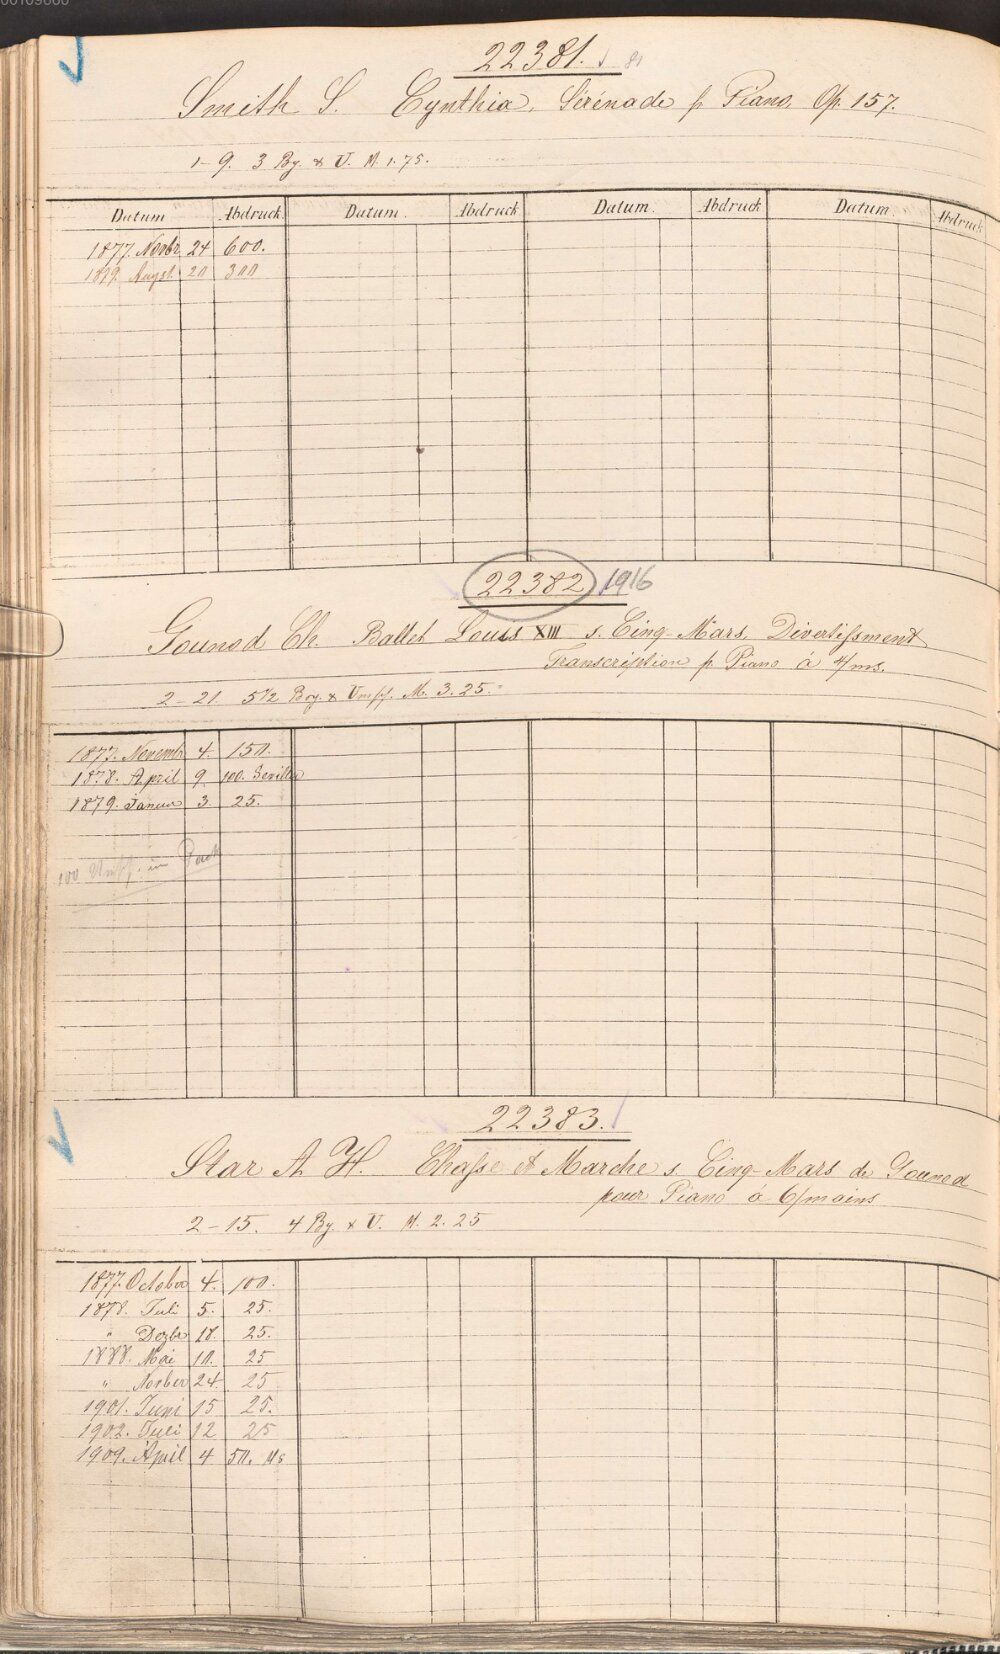 22381.
Smith S. Cynthia, Sérénade p. Piano, Op. 157.
1-9. 3 Bg. & U. M. 1.75.
Datum Abdruck Datum Abdruck Datum Abdruck Datum Abdruck
1877. Novbr. 24 600.
20 300
22382 1916
Gounod Ch. Ballet Louis XIII s. Cinq-Mars, Divertissment
Transcription p. Piano à 4/ms.
2-21. 5½ M. 3.25.
1877. Novemb. 4. 150.
1878. April 9. 100.
1879. Januar 3. 25.
100 Umschl. in Pack
22383.
Star A H. Chasse et Marche s. Cinq-Mars de Gounod
pour Piano à 6/mains
2-15. 4 Bg. & U. M. 2.25
1877. October 4. 100.
1878. Juli 5. 25.
" Dezbr 18. 25.
1888. Mai 10. 25
" Novber 24. 25
1901. Juni 15 25.
1902. Juli 12 25
1909. April 4 50.